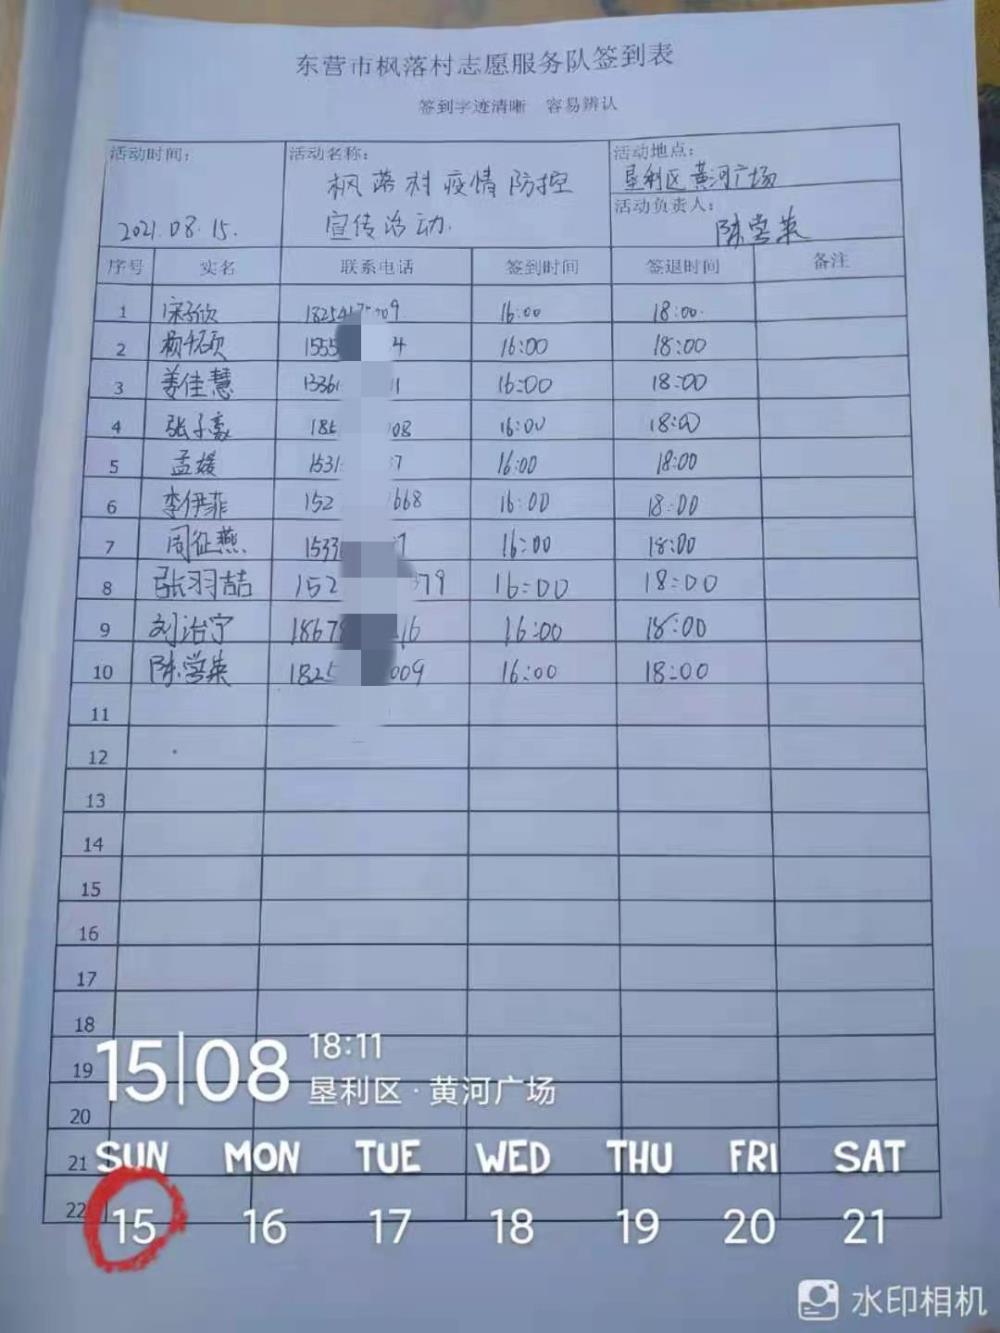 东营市枫落村志愿服务队签到表
签到字迹清晰 容易辨认
活动时间: 活动名称: 活动地点:
枫落村疫情防控 垦利区黄河广场
2021.08.15. 宣传活动. 活动负责人:
陈学英
序号 实名 联系电话 签到时间 签退时间 备注
1 16:00 18:00.
2 1555 4 16:00 18:00
3 姜佳慧 1336 11 16:00 18:00
4 张子豪 18 08 16:00 18:00
5 孟媛 1531 7 16:00 18:00
6 李伊菲 152 668 16:00 18:00
7 周征燕 1533 7 16:00 18:00
8 张羽喆 152 379 16:00 18:00
9 刘治宁 1867 16 16:00 18:00
10 陈学英 1825 009 16:00 18:00
11
12
13
14
15
16
17
18
19
20
21
22
15|08 18:11
垦利区·黄河广场
SUN MON TUE WED THU FRI SAT
15 16 17 18 19 20 21
水印相机